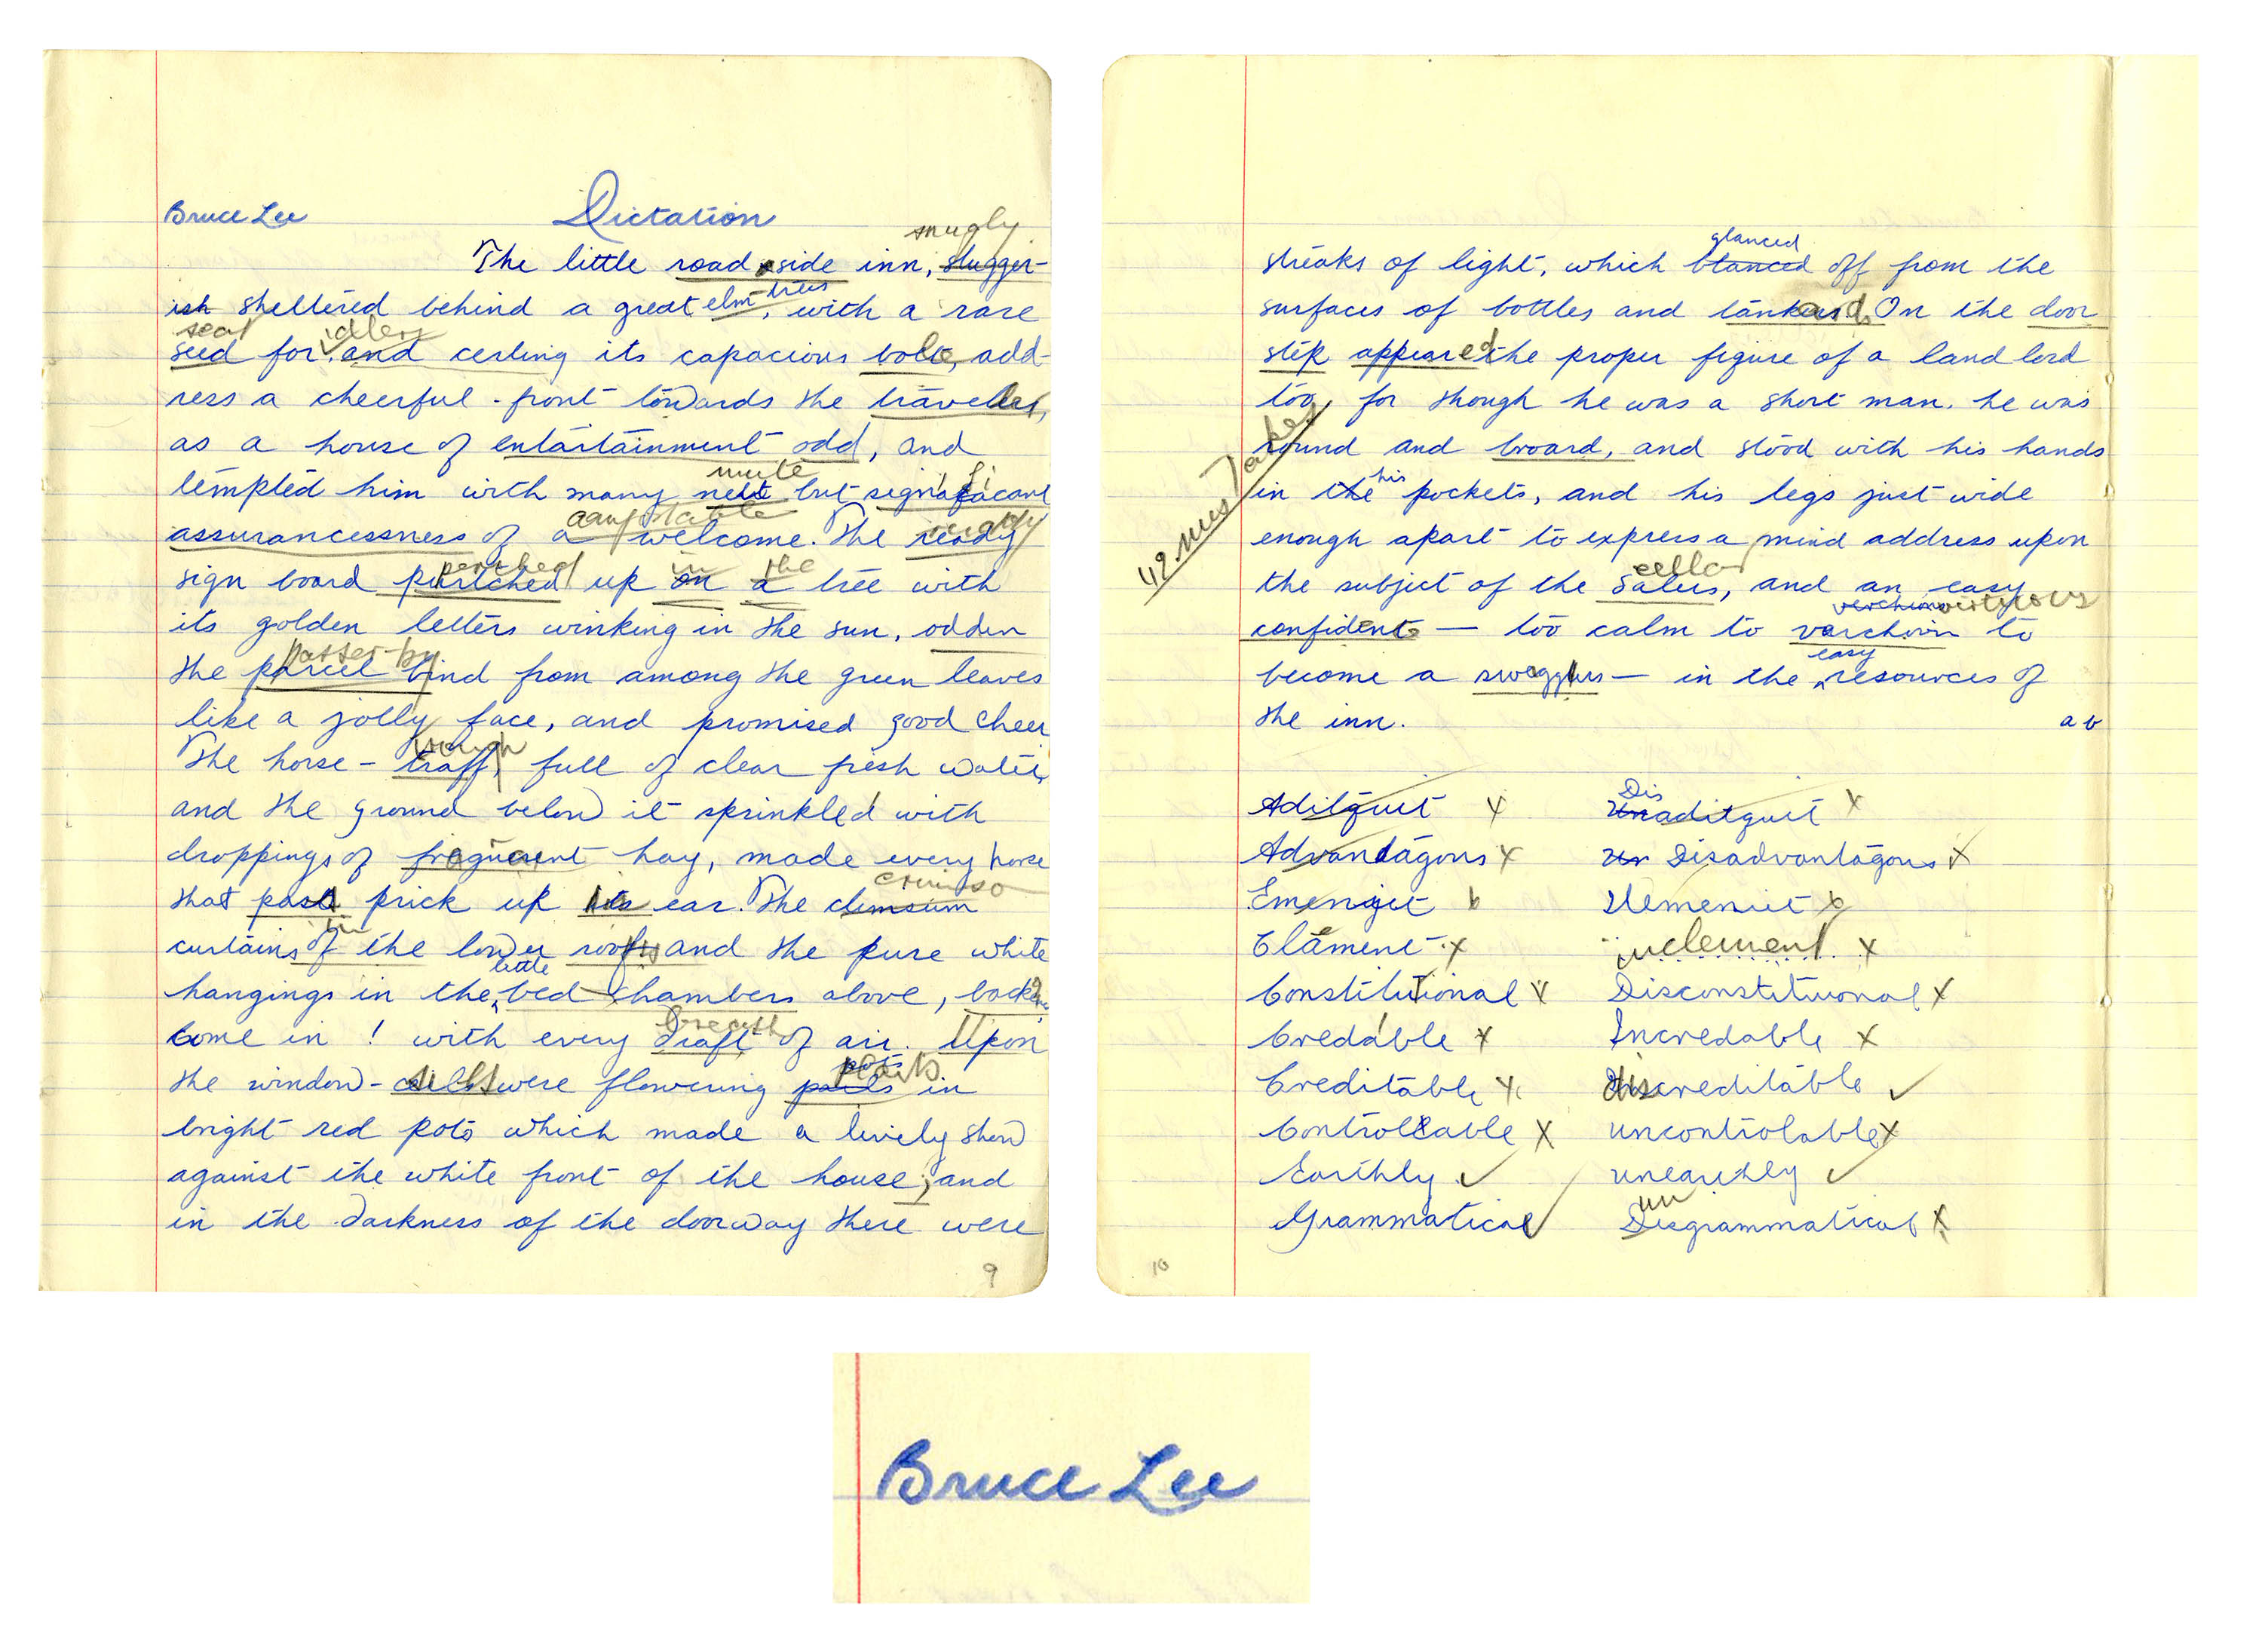 Bruce Lee Dictation
snugly
The little road side inn, slugger-
ish sheltered behind a great elm trees, with a rare
seat idlers
seed for and cerling its capacious bole, add-
ress a cheerful front towards the travelers,
as a house of entartainment odd, and
mute
tempted him with many but significant
comfortable
assurancessness of a welcome. The ready
perched in the
sign board partched up on a tree with
its golden letters winking in the sun, odden
passer-by
the parcel bind from among the green leaves
like a jolly face, and promised good cheer
trough
The horse - traff, full of clear fresh water,
and the ground below it sprinkled with
droppings of hay, made every horse
crimson
that past prick up his ear. The clemsum
in
curtains of the lower and the pure white
little
hangings in the bed chambers above,
breath
come in ! with every draft of air. Upon
pots plants
the window - were flowering in
bright red pots which made a lively show
against the white front of the house; and
in the darkness of the doorway there were
9
glanced
streaks of light, which blanced off from the
surfaces of bottles and tankards. On the door
step appeared the proper figure of a land lord
too, for though he was a short man. he was
round and broard, and stood with his hands
his
in the pockets, and his legs just wide
enough apart to express a mind address upon
cellar
the subject of the and an easy
virtuous
confidente — too calm to varchoin to
easy
become a — in the resources of
the inn. ab
42. mistakes
Dis
Aditquit x Unaditquit x
Advantagous x Un Disadvantagous x
Clement x inclement x
Constitutional x Disconstitutional x
Credable x Incredable x
Creditable x discreditable ✓
Controllable x uncontrolable x
Earthly ✓ unearthly ✓
un
Grammatical ✓ Disgrammatical x
10
Bruce Lee